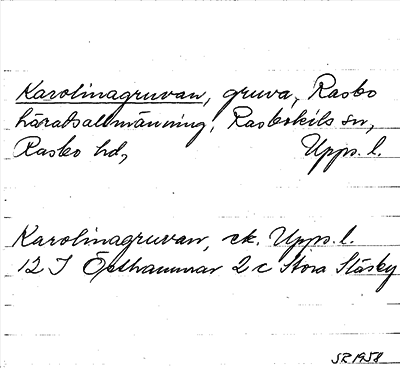 Karolinagruvan, gruva, Rasbo
häradsallmänning, Rasbokils sn,
Rasbo hd, Upps. l.
Karolinagruvan, ek. Upps. l.
12 I Östhammar 2 c Stora Stäsby
SR 1958